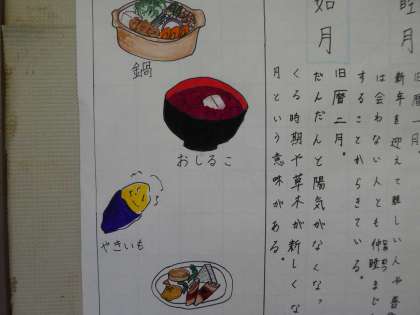 月
旧暦一月。
新年を迎えて親しい人や普
は会わない人とも仲睦まじ
することからきている。
如月
旧暦二月。
だんだんと陽気が
くる時期や草木が新しくな
月という意味がある。
鍋
おしるこ
やきいも